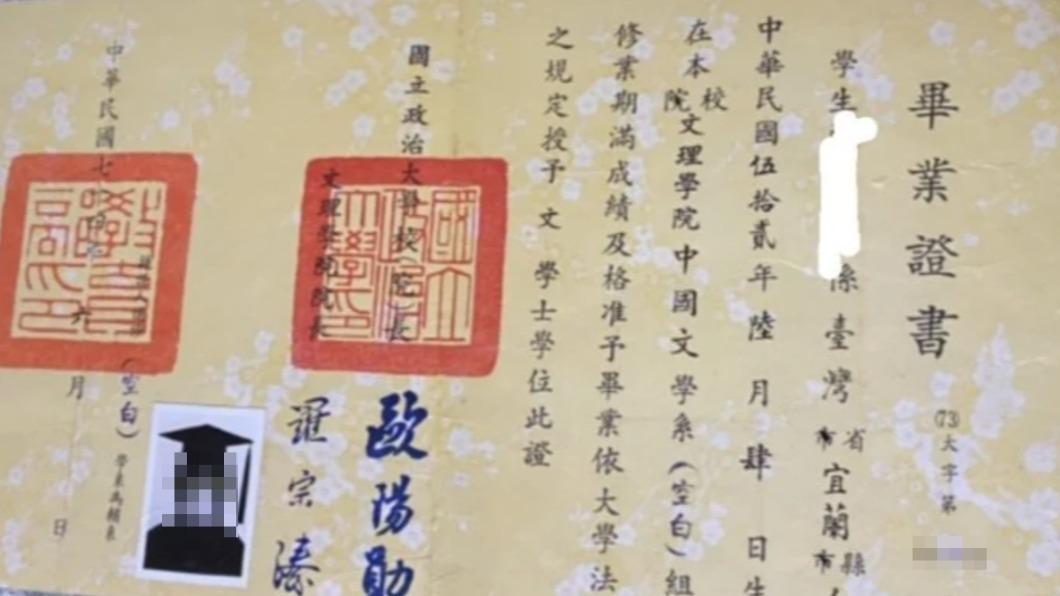 畢業證書
(73)大字第
學生
係臺灣省宜蘭縣
中華民國伍拾貳年陸月肆日生
在本校
院
文理學院中國文學系(空白)組
修業期滿成績及格准予畢業依大學法
之規定授予文學士學位此證
國立政治大學校(院)長
歐陽勛
文理學院院長
羅宗濤
(空白)
中華民國七十四年六月日